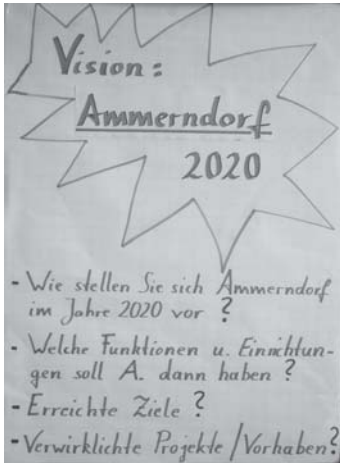 Vision:
Ammerndorf
2020
- Wie stellen Sie sich Ammerndorf
im Jahre 2020 vor ?
- Welche Funktionen u. Einrichtun-
gen soll A. dann haben ?
- Erreichte Ziele ?
- Verwirklichte Projekte / Vorhaben?